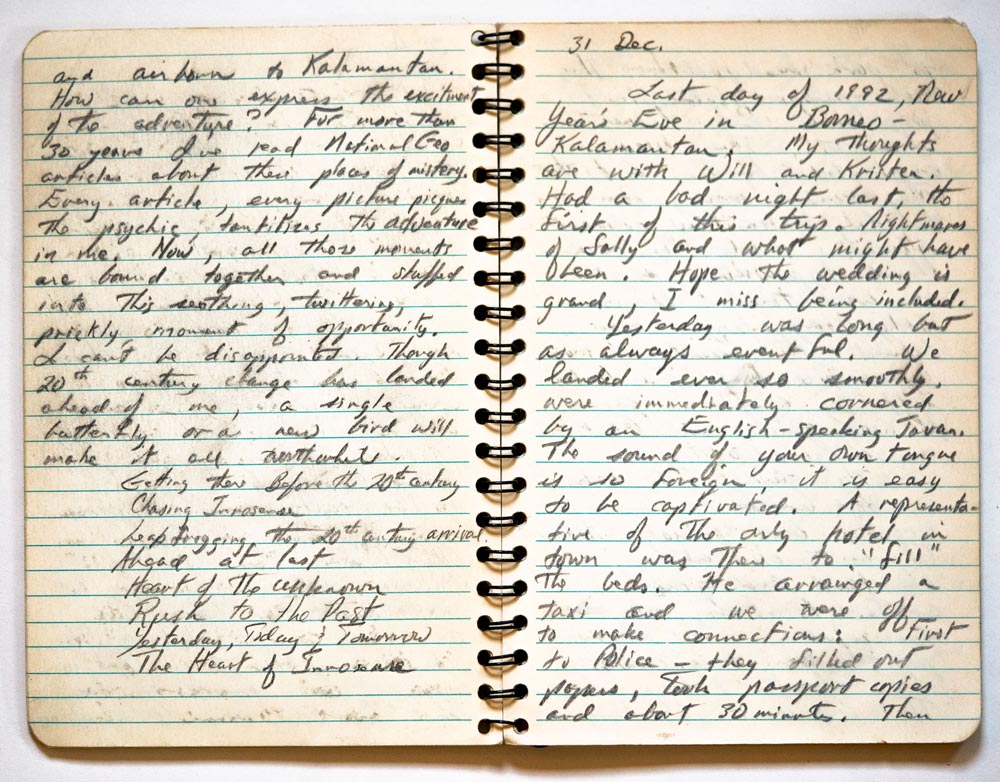 and airborn to Kalamantan.
How can one express the excitment
of the adventure? For more than
30 years I've read National Geo
articles about these places of mistery.
Every article, every picture piques
the psychic, tantilizes the adventure
in me. Now, all those moments
are bound together and stuffed
into this seething, twittering,
prickly, moment of opportunity.
I can't be disappointed. Though
20th century change has landed
ahead of me, a single
butterfly, or a new bird will
make it all worthwhile.
Getting there Before the 20th century
Chasing Innosense
Leap frogging the 20th century arrival.
Ahead at last
Heart of the unknown
Rush to the Past
Yesterday, Today & Tomorrow
The Heart of Innosense
31 Dec.
Last day of 1992, New
Year's Eve in Borneo -
Kalamantan. My Thoughts
are with Will and Kristen.
Had a bad night last, the
first of this trip. Nightmares
of Sally and what might have
been. Hope the wedding is
grand, I miss being included.
Yesterday was long but
as always eventful. We
landed ever so smoothly,
were immediately cornered
by an English-speaking Javan.
The sound of your own tongue
is so foreign, it is easy
to be captivated. A representa-
tive of the only hotel in
town was there to "fill"
the beds. He arrainged a
taxi and we were off
to make connections: First
to Police - they filled out
papers, took passport copies
and about 30 minutes. Then